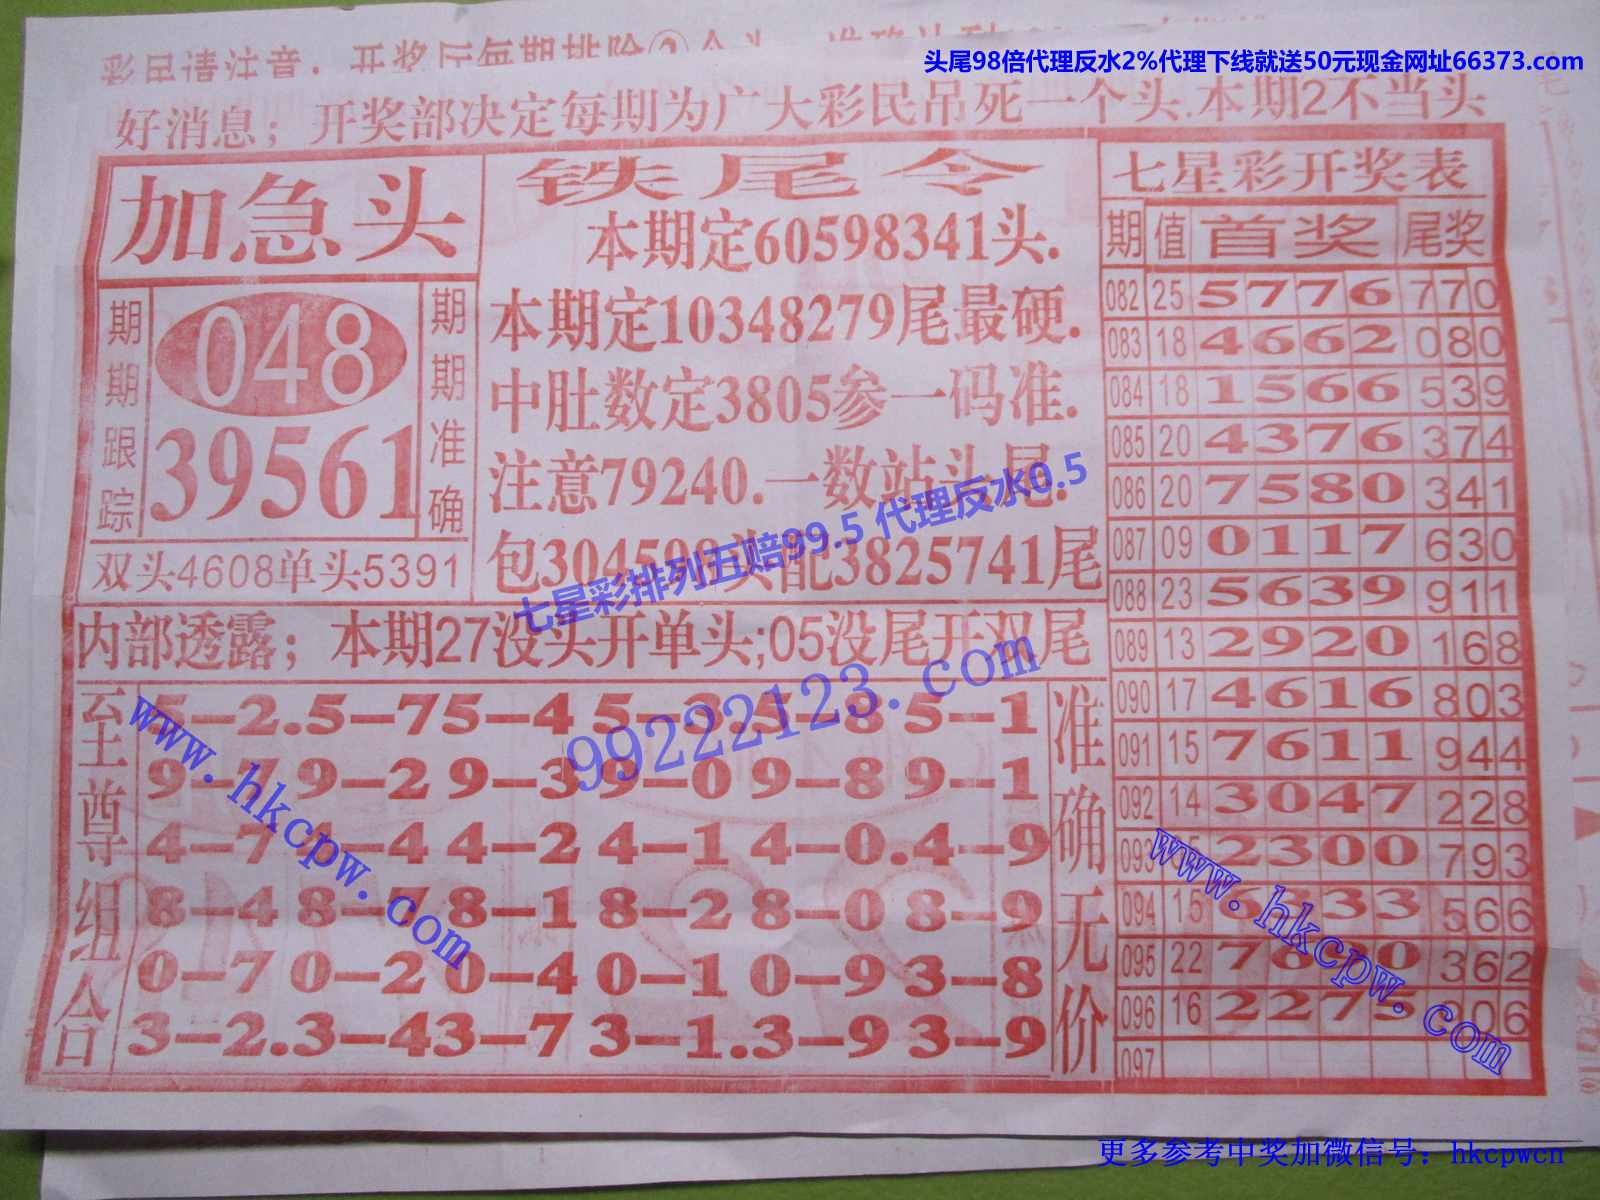 头尾98倍代理反水2%代理下线就送50元现金网址66373.com
好消息；开奖部决定每期为广大彩民吊死一个头.本期2不当头
加急头
期期跟踪
048
39561
期期准确
双头4608单头5391
铁尾令
本期定60598341头.
本期定10348279尾最硬.
中肚数定3805参一码准.
注意79240.一数站头尾.
3825741尾
七星彩排列五赔99.5 代理反水0.5
内部透露；本期27没头开单头;05没尾开双尾
99222123.com
www.hkcpw.com
至尊组合
5-2.5-7 5-4 5-1
9-7 9-2 9-3 9-0 9-8 9-1
4-2 4-1 4-0.4-9
8-4 8-7 8-1 8-2 8-0 8-9
0-7 0-2 0-4 0-1 0-9 3-8
3-2.3-4 3-7 3-1.3-9 3-9
准确无价
七星彩开奖表
期 值 首奖 尾奖
082 25 5776 770
083 18 4662 080
084 18 1566 539
085 20 4376 374
086 20 7580 341
087 09 0117 630
088 23 5639 911
089 13 2920 168
090 17 4616 803
091 15 7611 944
092 14 3047 228
093 2300 793
094 566
095 22 362
096 16 2275 06
097
www.hkcpw.com
更多参考中奖加微信号：hkcpwcn